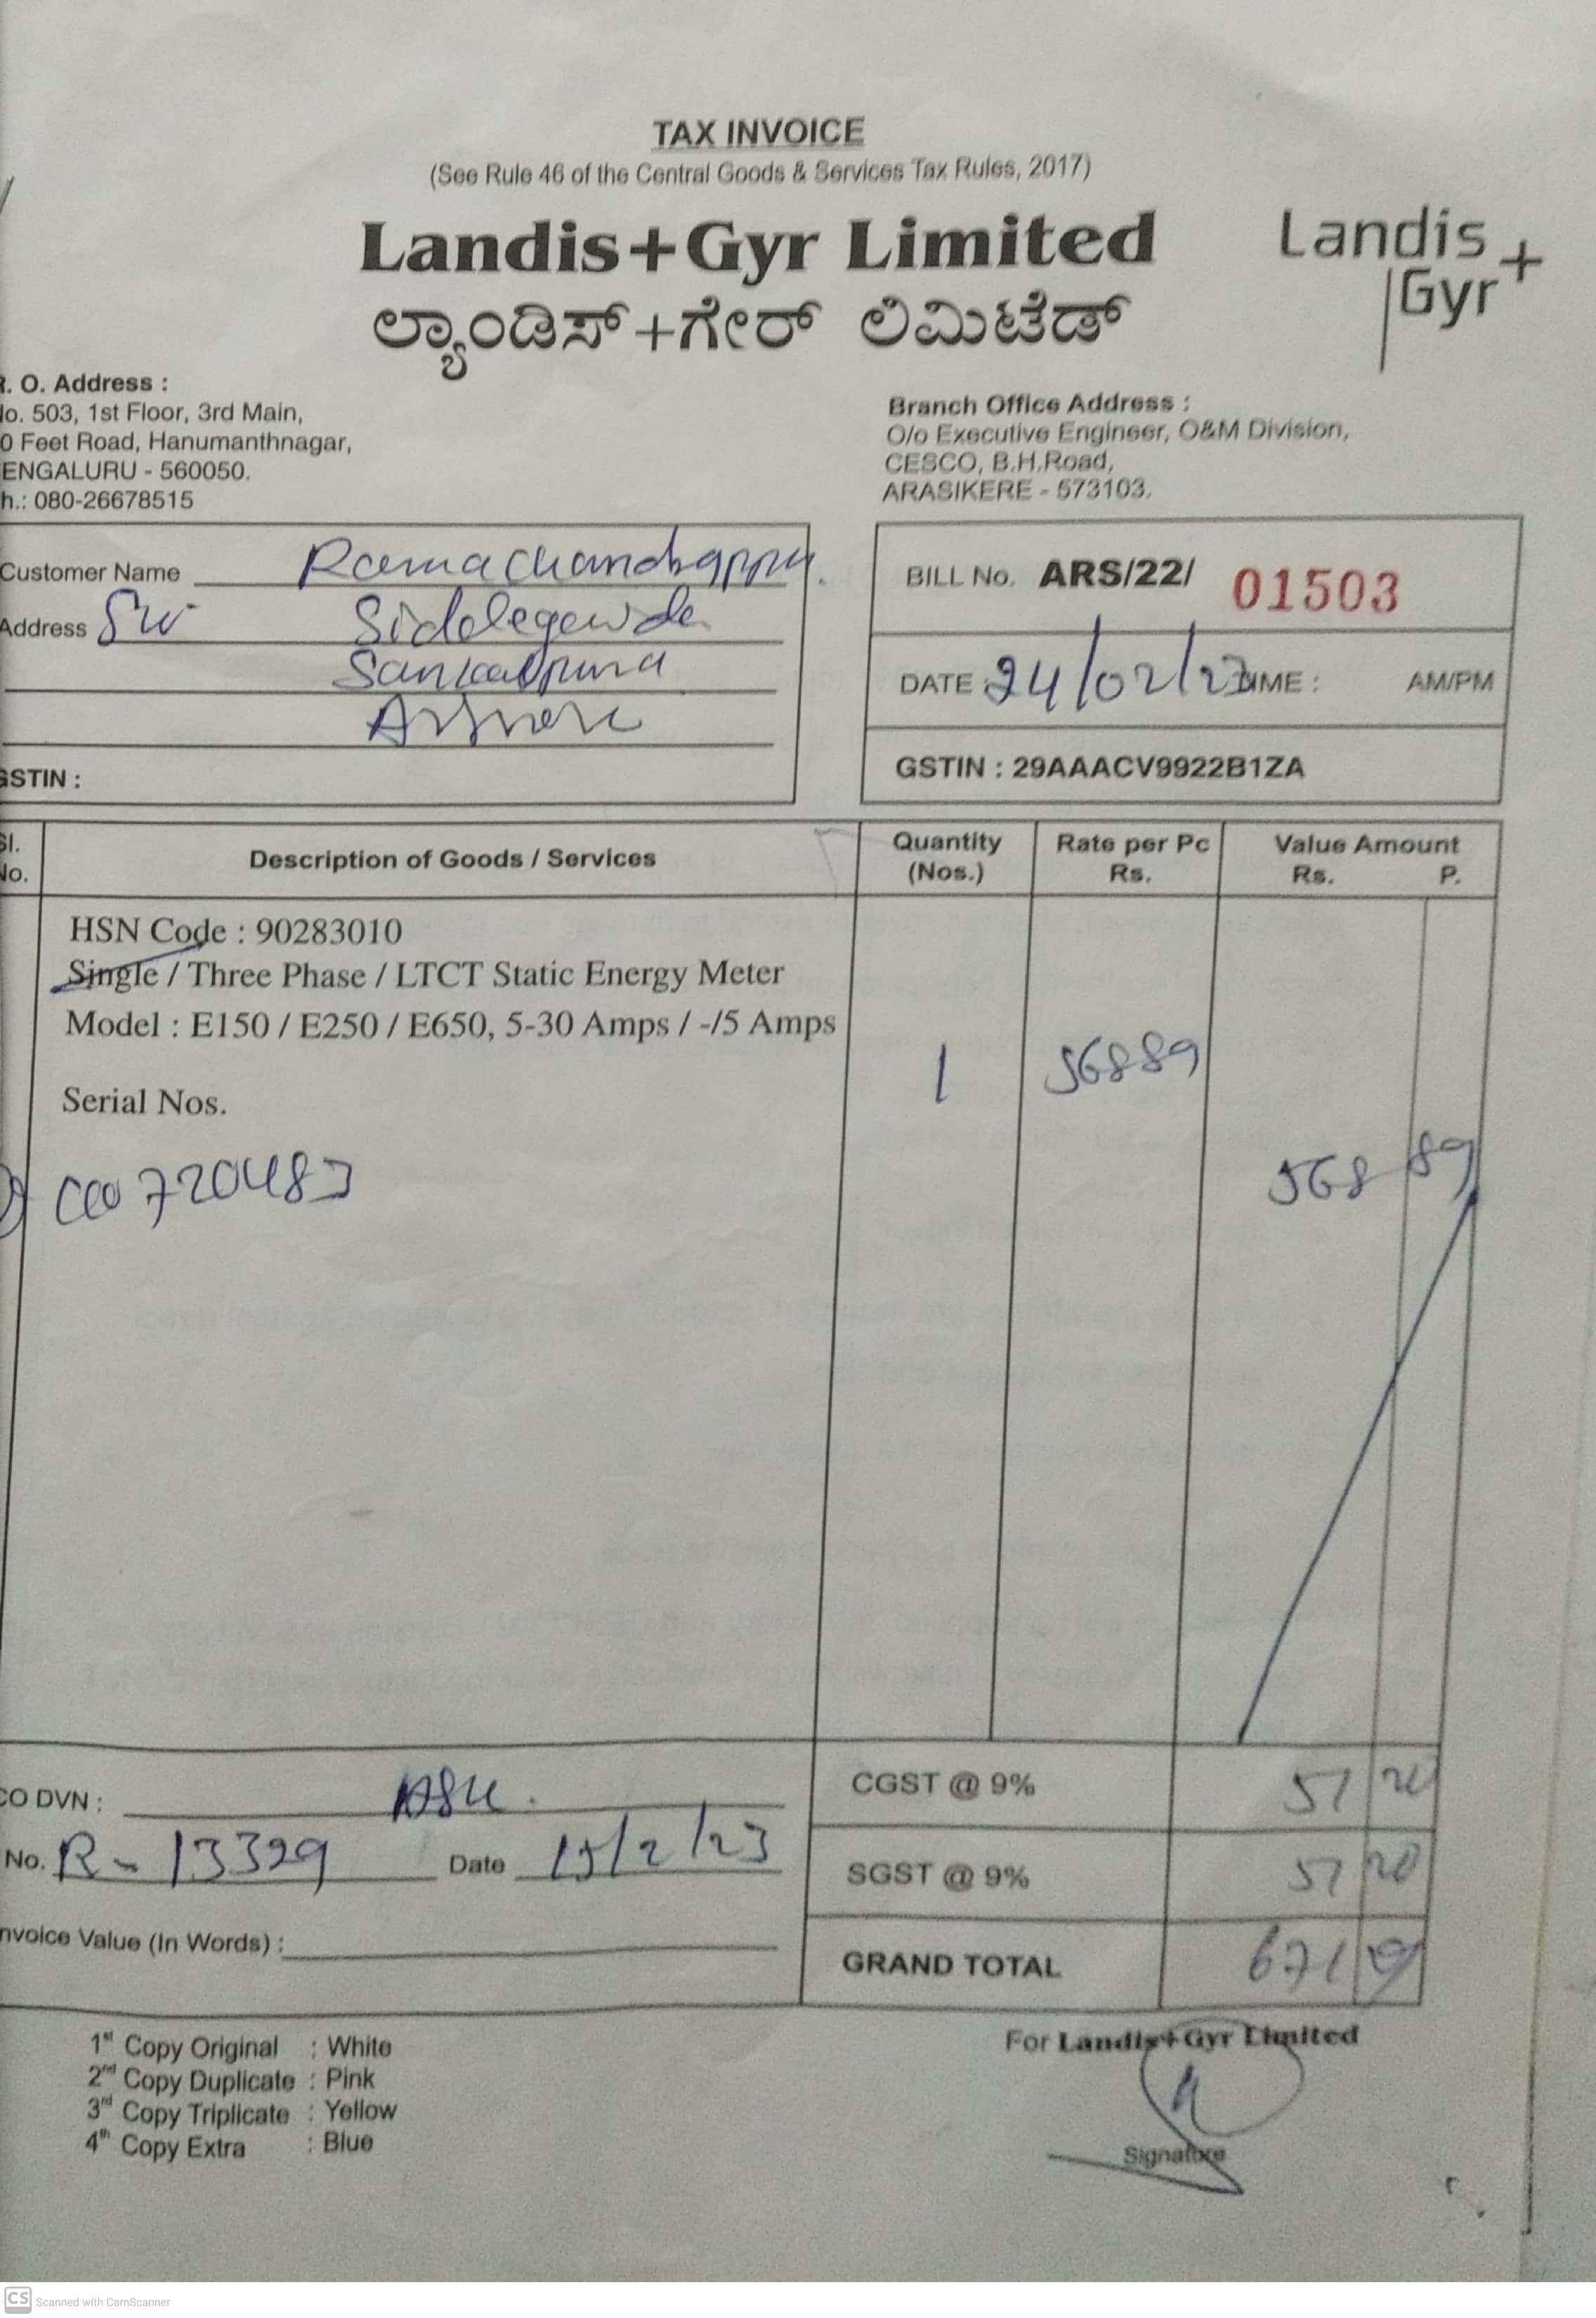 TAX INVOICE
(See Rule 46 of the Central Goods & Services Tax Rules, 2017)
Landis+Gyr Limited
ಲ್ಯಾಂಡಿಸ್+ಗೇರ್ ಲಿಮಿಟೆಡ್
Landis+
Gyr
. O. Address :
o. 503, 1st Floor, 3rd Main,
0 Feet Road, Hanumanthnagar,
ENGALURU - 560050.
h.: 080-26678515
Branch Office Address :
O/o Executive Engineer, O&M Division,
CESCO, B.H.Road,
ARASIKERE - 573103.
Customer Name Ramachandrappa.
Address Sidelegowda
Sankalpura
GSTIN :
BILL No. ARS/22/ 01503
DATE : 24/02/23 TIME : AM/PM
GSTIN : 29AAACV9922B1ZA
Sl. No. Description of Goods / Services Quantity (Nos.) Rate per Pc Rs. Value Amount Rs. P.
HSN Code : 90283010
Single / Three Phase / LTCT Static Energy Meter
Model : E150 / E250 / E650, 5-30 Amps / -/5 Amps
1 56889
Serial Nos.
568 89
CO DVN : ASK.
No. R - 13329 Date 15/2/23
nvoice Value (In Words) :
CGST @ 9% 51 20
SGST @ 9% 51 20
GRAND TOTAL 671
1st Copy Original : White
2nd Copy Duplicate : Pink
3rd Copy Triplicate : Yellow
4th Copy Extra : Blue
For Landis+Gyr Limited
Signature
CS Scanned with CamScanner